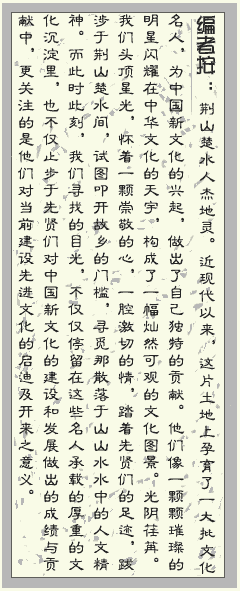 编者按：荆山楚水人杰地灵。近现代以来，这片土地上孕育了一大批文化
名人，为中国新文化的兴起，做出了自己独特的贡献。他们像一颗颗璀璨的
明星闪耀在中华文化的天宇，构成了一幅灿然可观的文化图景。光阴荏苒。
我们头顶星光，怀着一颗崇敬的心，一腔激切的情，踏着先贤们的足迹，跋
涉于荆山楚水间，试图叩开故乡的门槛，寻觅那散落于山山水水中的人文精
神。而此时此刻，我们寻找的目光，不仅仅停留在这些名人承载的厚重的文
化沉淀里，也不仅止步于先贤们对中国新文化的建设和发展做出的成绩与贡
献中，更关注的是他们对当前建设先进文化的启迪及开来之意义。